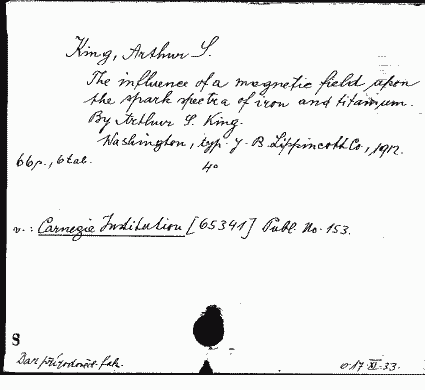 King, Arthur S.
The influence of a magnetic field upon
the spark spectra of iron and titanium.
By Arthur S. King.
Washington, typ. J. B. Lippincott Co, 1912.
66 p., 6 tab. 4°
v.: Carnegie Institution [65341] Publ. No. 153.
8
Dar přírodověd. fak. 017 XI 33.